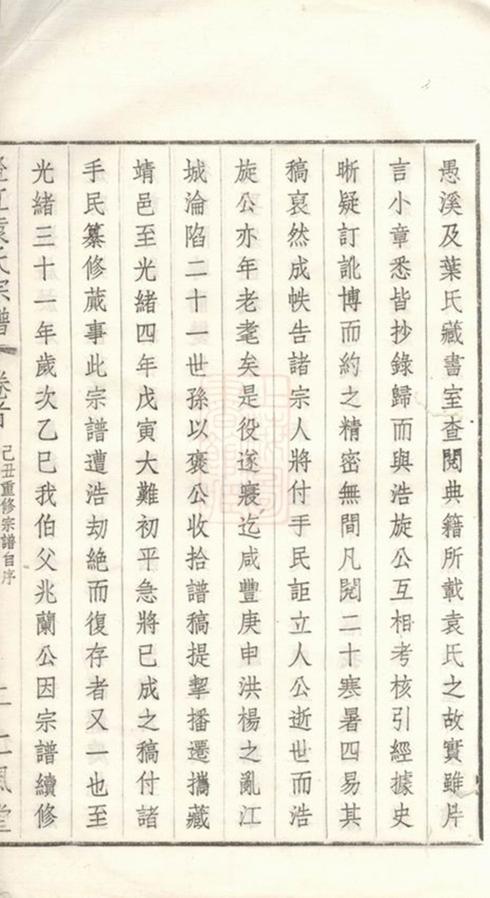 愚溪及葉氏藏書室查閱典籍所載袁氏之故實雖片
言小章悉皆抄錄歸而與浩旋公互相考核引經據史
晰疑訂訛博而約之精密無間凡閱二十寒暑四易其
稿裒然成帙告諸宗人將付手民詎立人公逝世而浩
旋公亦年老耄矣是役遂寢迄咸豐庚申洪楊之亂江
城淪陷二十一世孫以褒公收拾譜稿提挈播遷攜藏
靖邑至光緒四年戊寅大難初平急將已成之稿付諸
手民纂修蕆事此宗譜遭浩劫絕而復存者又一也至
光緒三十一年歲次乙巳我伯父兆蘭公因宗譜續修
袁氏宗譜 卷首 己丑重修宗譜自序